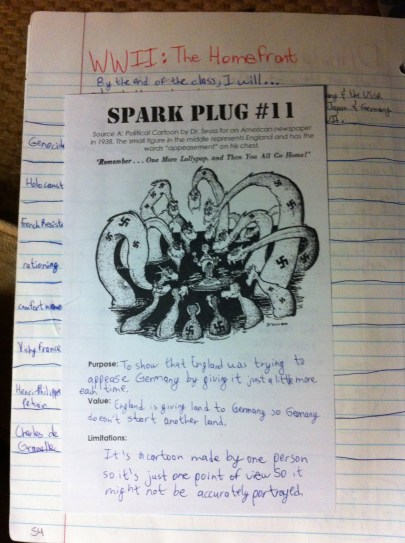 WWII: The Homefront
By the end of the class, I will...
& the USSR
Japan & Germany
SPARK PLUG #11
Source A: Political Cartoon by Dr. Seuss for an American newspaper
in 1938. The small figure in the middle represents England and has the
words "appeasement" on his chest.
"Remember . . . One More Lollypop, and Then You All Go Home!"
Genocide
Holocaust
French Resista
rationing
comfort women
Vichy France
Henri-Philippe
Petain
Charles de
Gaulle
Purpose: To show that England was trying to
appease Germany by giving it just a little more
each time.
Value: England is giving land to Germany so Germany
doesn't start another land.
Limitations:
It's a cartoon made by one person
so it's just one point of view so it
might not be accurately portrayed.
54